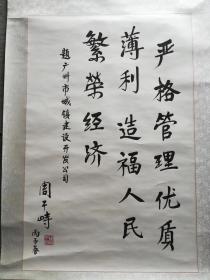 严格管理优质
薄利 造福人民
繁荣经济
题广州市城镇建设开发公司
周干峙
丙子春